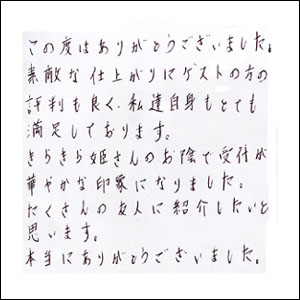 この度はありがとうございました。
素敵な仕上がりにゲストの方の
評判も良く、私達自身もとても
満足しております。
きらきら姫さんのお陰で受付が
華やかな印象になりました。
たくさんの友人に紹介したいと
思います。
本当にありがとうございました。